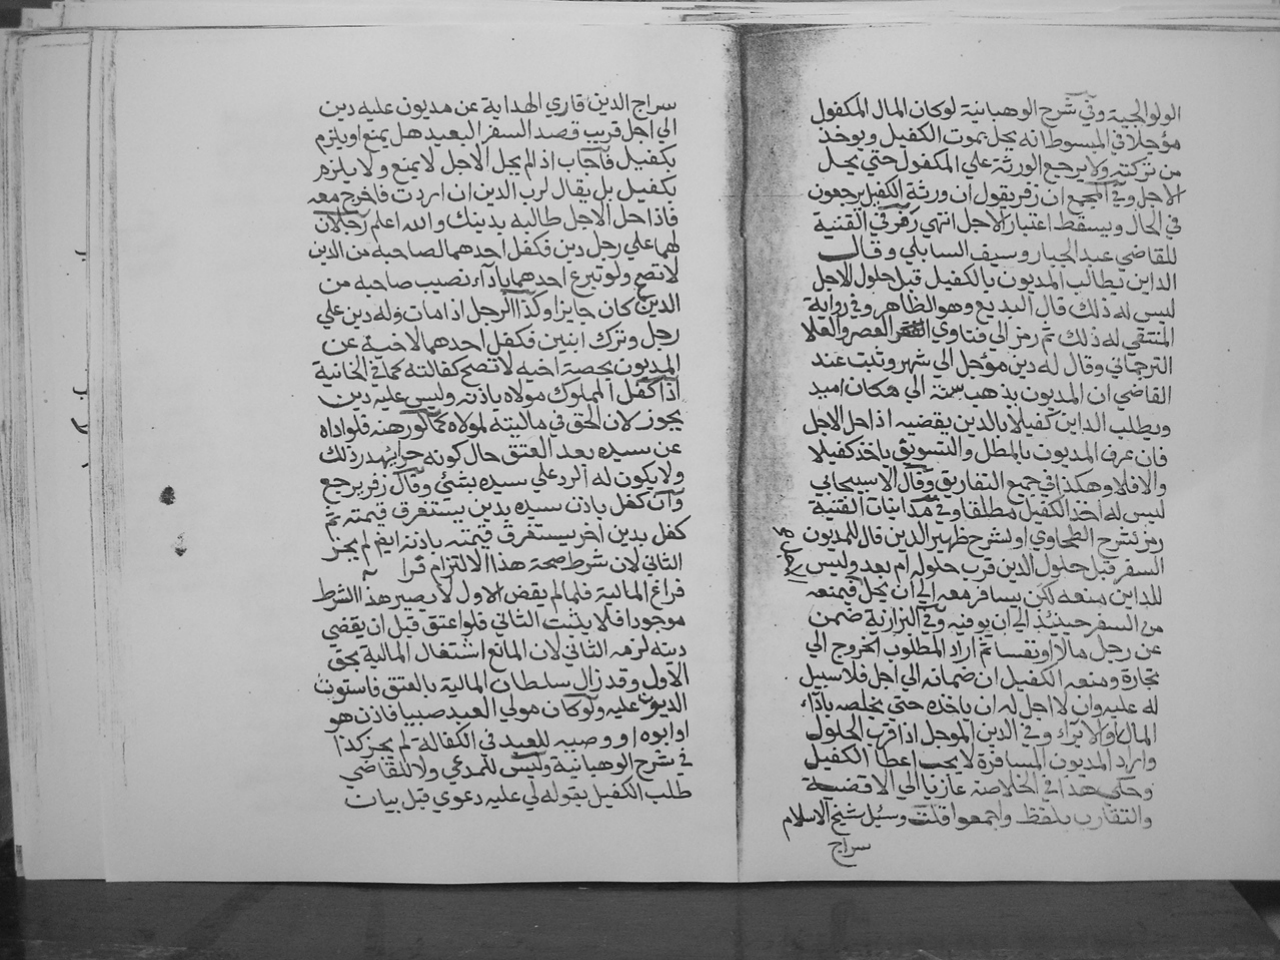 الولوالجية وفي شرح الوهبانية لوكان المال المكفول
مؤجلا في المبسوط انه يحل بموت الكفيل ويوخذ
من تركته ولا يرجع الورثة علي المكفول حتي يحل
الاجل وفي المجمع ان زفر يقول ان ورثة الكفيل يرجعون
في الحال ويسقط اعتبار الاجل انتهي رقم في القنية
للقاضي عبد الجبار وسيف السايلي وقال
الداين يطالب المديون بالكفيل قبل حلول الاجل
ليس له ذلك قال البديع وهو الظاهر وفي رواية
المنتقي له ذلك ثم رمز الي فتاوي العصر والعلا
الترجماني وقال له دين مؤجل الي شهر وثبت عند
القاضي ان المديون يذهب سنة الي مكان
ويطلب الداين كفيلا بالدين يقضيه اذا حل الاجل
فان عرف المديون بالمطل والتسويق ياخذ كفيلا
والا فلا وهكذا في جميع التفاريق وقال الاسبيجابي
ليس له اخذ الكفيل مطلقا وفي مداينات القنية
رمز لشرح الطحاوي او لشرح ظهير الدين قال للمديون
السفر قبل حلول الدين قرب حلوله ام بعد وليس
للداين منعه لكن يسافر معه الي ان يحل فيمنعه
من السفر حينئذ الي ان يوفيه وفي البزازية ضمن
عن رجل مالا او نفسا ثم اراد المطلوب الخروج الي
تجارة ومنعه الكفيل ان ضمانه الي اجل فلا سبيل
له عليه وان لا اجل له ان ياخذه حتي يخلصه باداء
المال او الابراء وفي الدين الموجل اذا قرب الحلول
واراد المديون المسافرة لا يجب اعطا الكفيل
وحكي هذا في الخلاصة عازيا الي الاقضية
والتقارب بلفظ واجمعوا قلت وسئل شيخ الاسلام
سراج
سراج الدين قاري الهداية عن مديون عليه دين
الي اجل قريب قصد السفر البعيد هل يمنع او يلزم
بكفيل فاجاب اذا لم يحل الاجل لا يمنع ولا يلزم
بكفيل بل يقال لرب الدين ان اردت فاخرج معه
فاذا حل الاجل طالبه بدينك والله اعلم رجلان
لهما علي رجل دين فكفل احدهما لصاحبه من الدين
لا تصح ولو تبرع احدهما باداء نصيب صاحبه من
الدين كان جايزا وكذا الرجل اذا مات وله دين علي
رجل وترك ابنين فكفل احدهما لاخيه عن
المديون بحصة اخيه لا تصح كفالته كما في الخانية
اذا كفل المملوك مولاه باذنه وليس عليه دين
يجوز لان الحق في ماليته لمولاه كما لو رهنه فلو اداه
عن سيده بعد العتق حال كونه حرا يهدر ذلك
ولا يكون له الرد علي سيده بشئ وقال زفر يرجع
وان كفل باذن سيده بدين يستغرق قيمته ثم
كفل بدين اخر يستغرق قيمته باذنه ايضا لم يجز
الثاني لان شرط صحة هذا الالتزام
فراغ المالية فلما لم يقض الاول لا يصير هذا الشرط
موجودا فلا يثبت الثاني فلو اعتق قبل ان يقضي
دينه لزمه الثاني لان المانع اشتغال المالية بحق
الاول وقد زال سلطان المالية بالعتق فاستوت
الديون عليه ولو كان مولي العبد صبيا فاذن هو
او ابوه او وصيه للعبد في الكفالة لم يجز كذا
في شرح الوهبانية وليس للمدعي ولا للقاضي
طلب الكفيل بقوله لي عليه دعوي قبل بيان